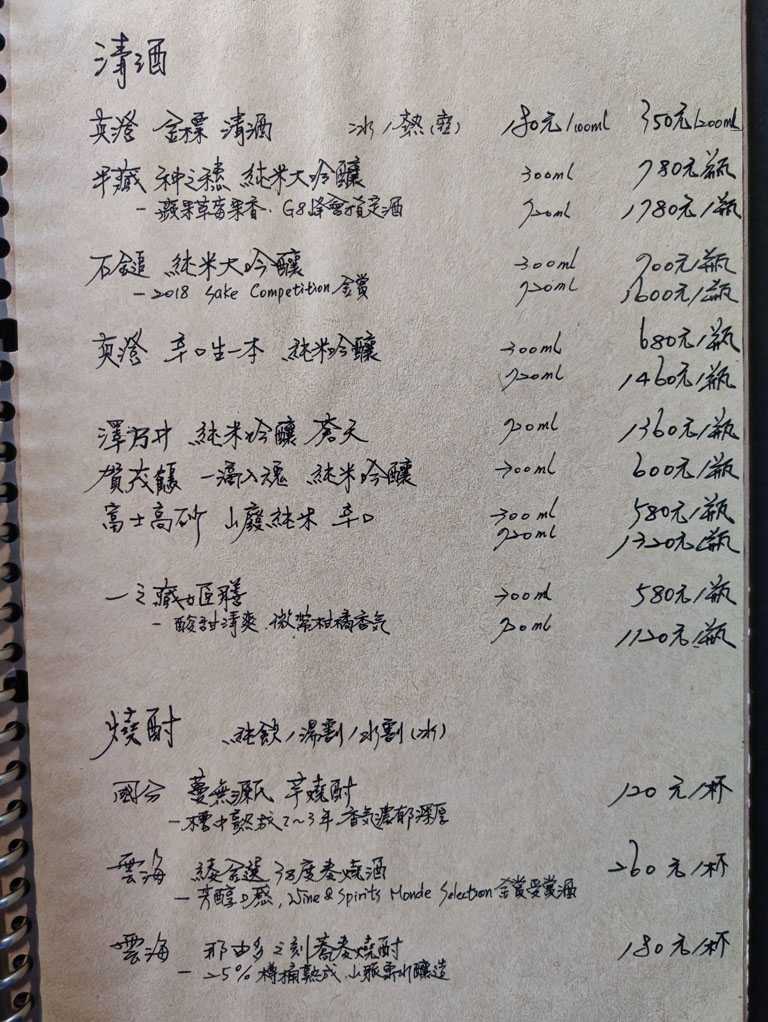 清酒
英澄 金標 清酒 冰/熱(燙) 180元/100ml 350元/200ml
半藏 神之穗 純米大吟釀 300ml 780元/瓶
- 蘋果草莓果香. G8峰會指定酒 720ml 1780元/瓶
石鎚 純米大吟釀 300ml 900元/瓶
- 2018 Sake Competition 金賞 720ml 1600元/瓶
英澄 辛口生一本 純米吟釀 300ml 680元/瓶
720ml 1460元/瓶
澤乃井 純米吟釀 蒼天 720ml 1360元/瓶
賀茂鶴 一滴入魂 純米吟釀 300ml 600元/瓶
富士高砂 山廢純米 辛口 300ml 580元/瓶
720ml 1320元/瓶
一之藏 姫膳 300ml 580元/瓶
- 酸甜清爽 微帶柑橘香氣 720ml 1120元/瓶
燒酎 純飲/湯割/水割(冰)
國分 蔓無源氏 芋燒酎 120元/杯
- 槽中熟放2~3年 香氣濃郁深厚
雲海 綾金選 38度麥燒酒 260元/杯
- 芳醇口感, Wine & Spirits Monde Selection 金賞受賞酒
雲海 那由多之刻蕎麥燒酎 180元/杯
- 25% 樽桶熟成 山脈泉水釀造